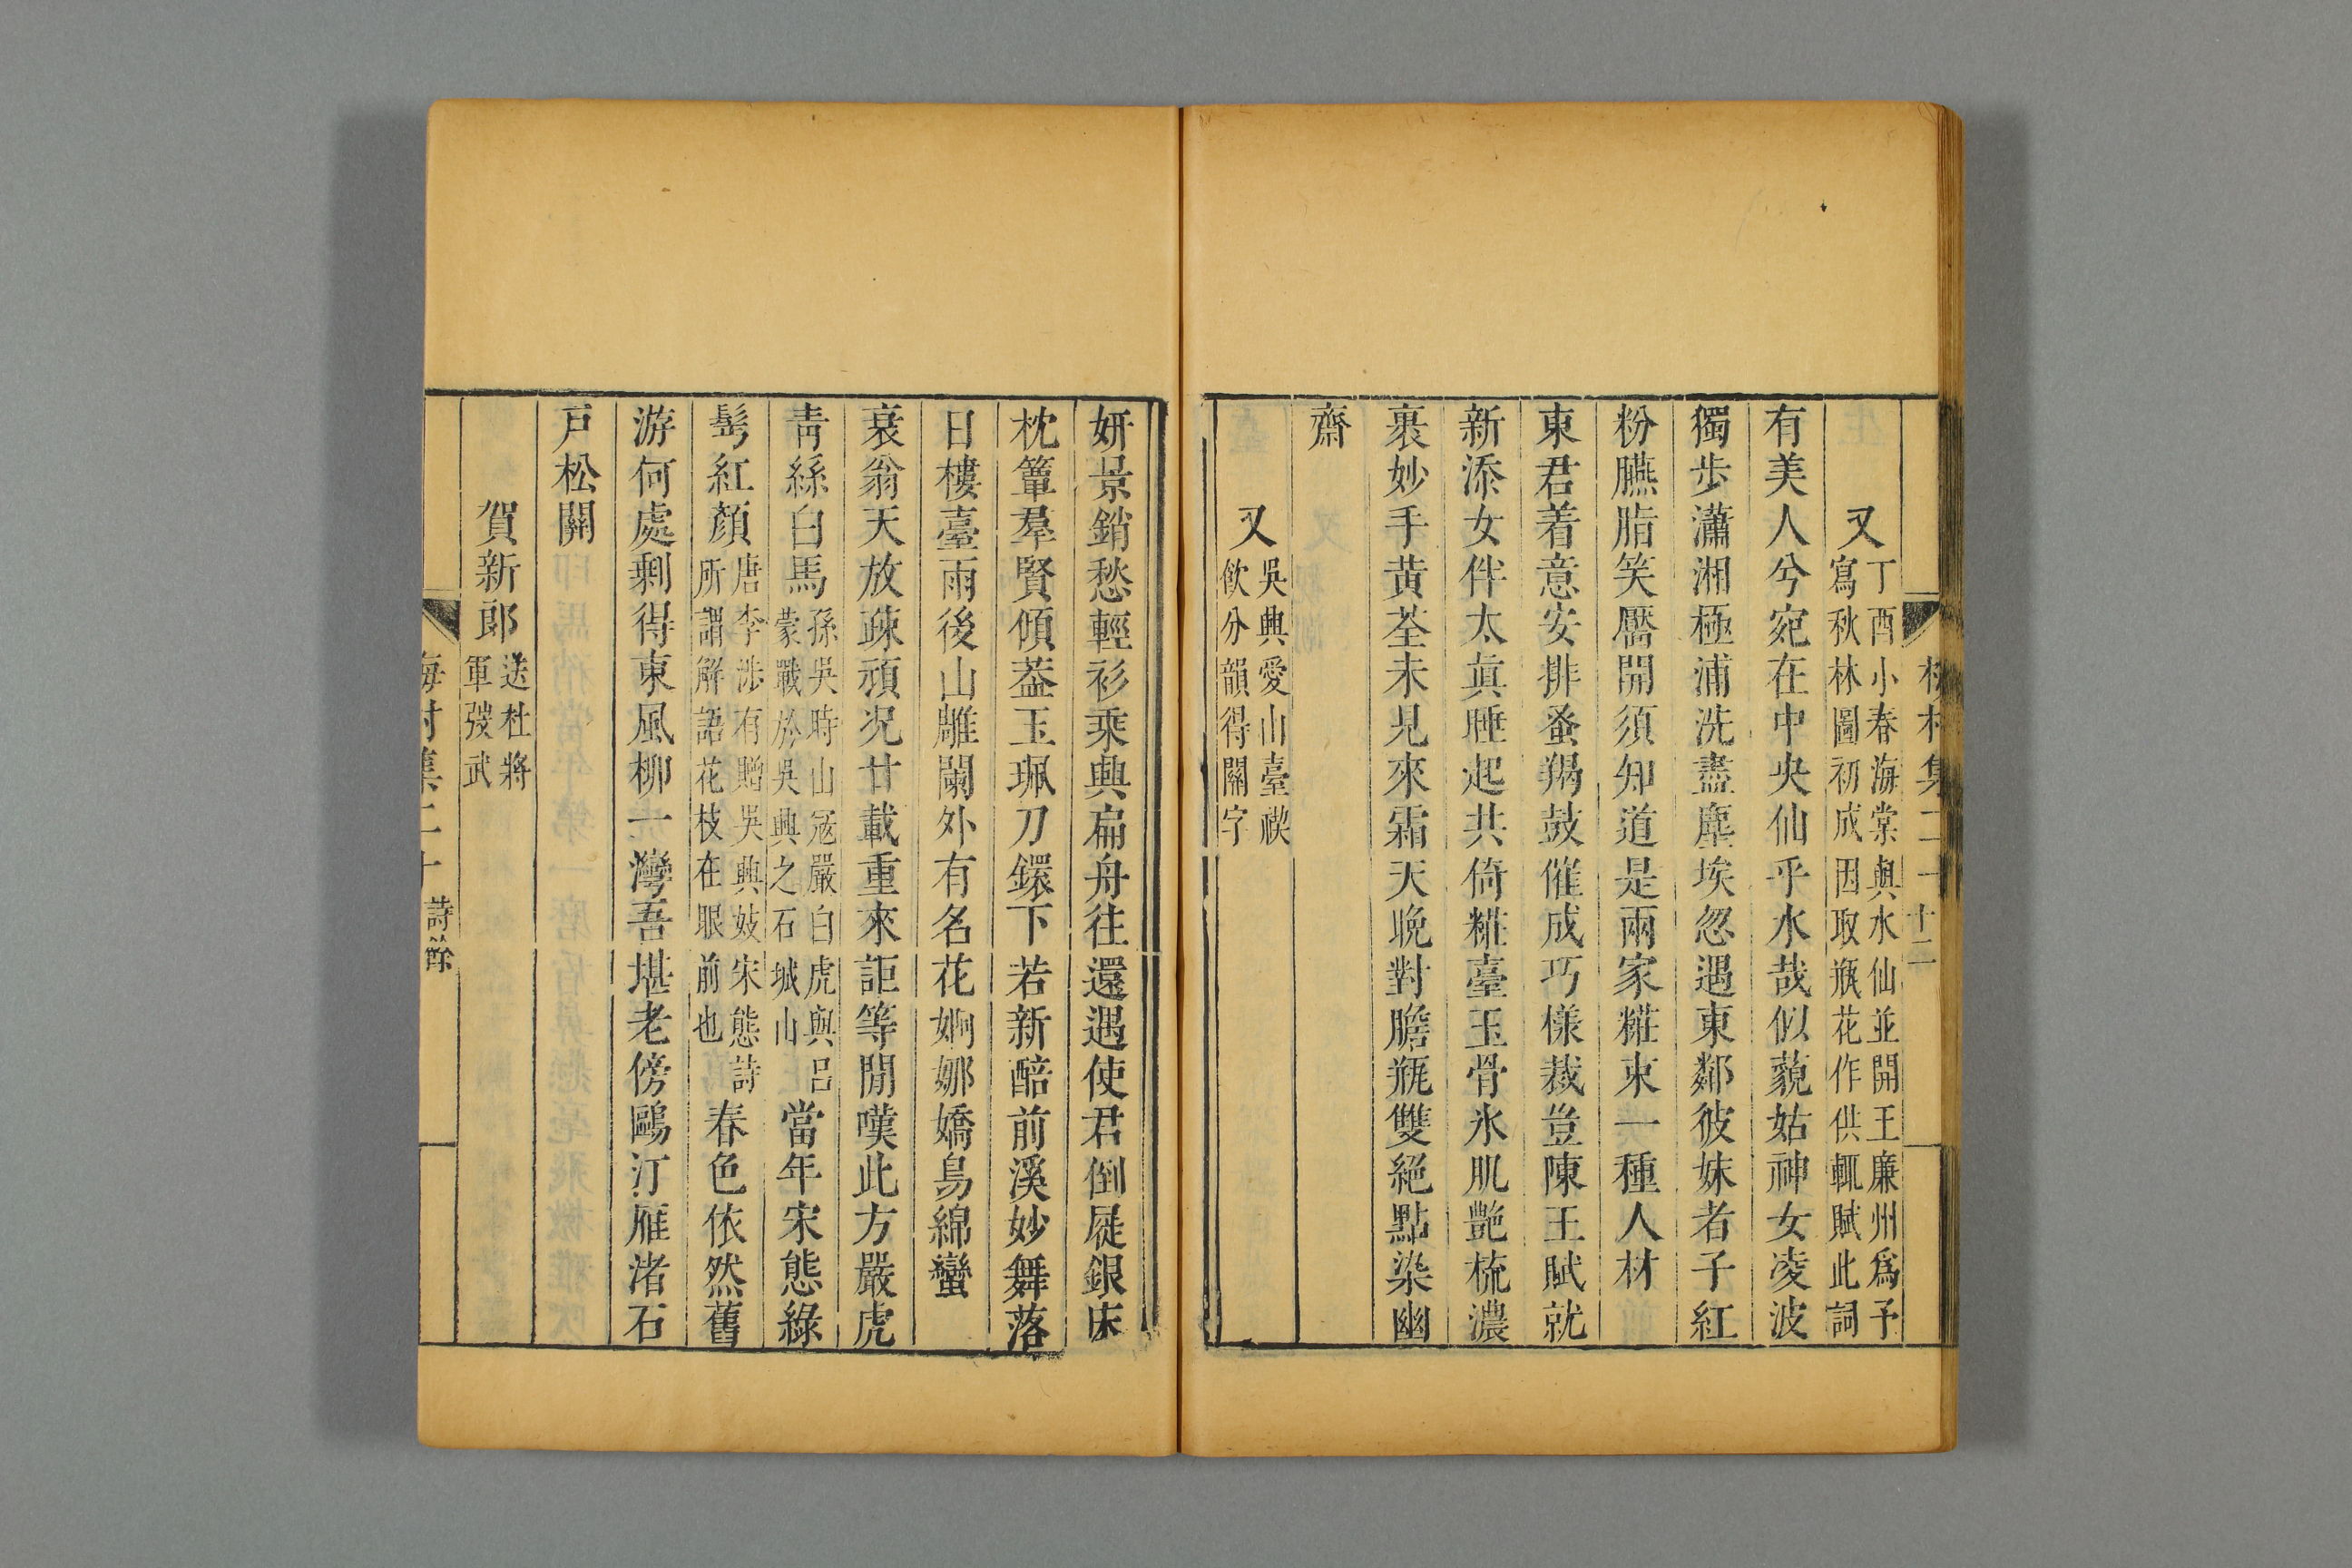 又丁酉小春海棠與水仙並開王廉州爲予
寫秋林圖初成因取瓶花作供輒賦此詞
有美人兮宛在中央仙乎水哉似藐姑神女凌波
獨步瀟湘極浦洗盡塵埃忽遇東鄰彼姝者子紅
粉臙脂笑靨開須知道是兩家糚束一種人材
東君着意安排蚤羯鼓催成巧樣裁豈陳王賦就
新添女伴太眞睡起共倚糚臺玉骨氷肌艶梳濃
裹妙手黄荃未見來霜天晚對膽瓶雙絕點染幽
齋
又吳興愛山臺禊
飲分韻得關字
妍景銷愁輕衫乘興扁舟往還遇使君倒屣銀床
枕簟羣賢傾葢玉珮刀鐶下若新醅前溪妙舞落
日樓臺雨後山雕闌外有名花婀娜嬌鳥綿蠻
衰翁天放疎頑况廿載重來詎等閒嘆此方嚴虎
靑絲白馬孫吳時山寇嚴白虎與呂
蒙戰於吳興之石城山當年宋態綠
髩紅顏唐李涉有贈吳興妓宋態詩
所謂解語花枝在眼前也春色依然舊
游何處剩得東風柳一灣吾堪老傍鷗汀雁渚石
戶松關
賀新郎送杜將
軍弢武
梅村集二十 詩餘
村集二十 十二